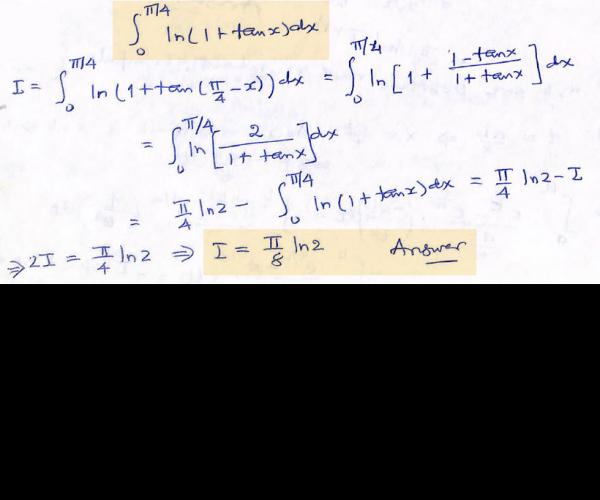 ∫₀^{π/4} ln(1+tanx)dx
I = ∫₀^{π/4} ln(1+tan(π/4 -x))dx = ∫₀^{π/4} ln[1 + (1-tanx)/(1+tanx)]dx
= ∫₀^{π/4} ln[2/(1+tanx)]dx
= π/4 ln2 - ∫₀^{π/4} ln(1+tanx)dx = π/4 ln2 - I
⇒ 2I = π/4 ln2 ⇒ I = π/8 ln2 Answer